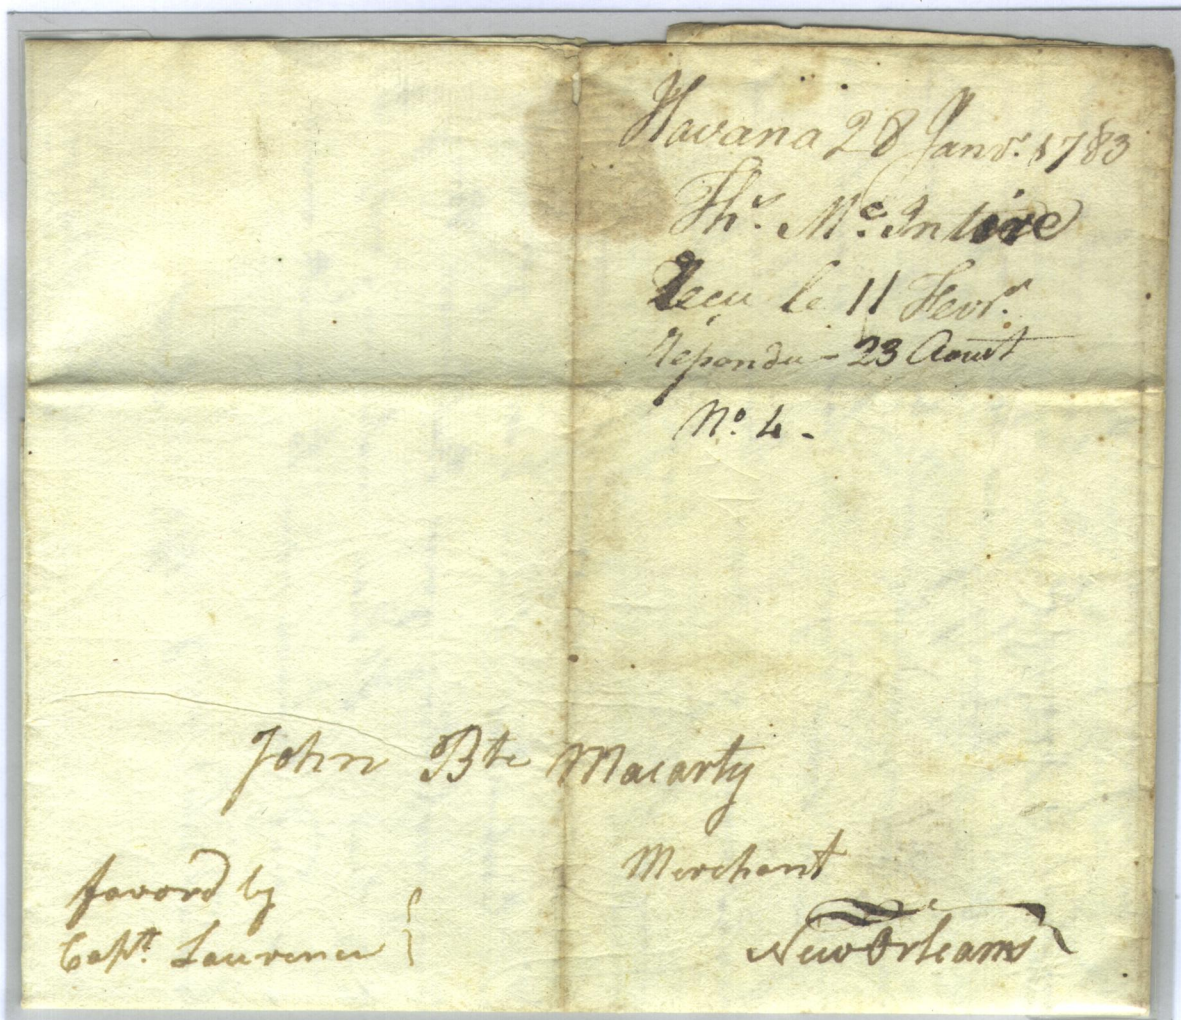 Havana 28 Janvr. 1783
Thr. Mc. Intire
Recu le 11 Fevr.
Répondu - 23 Aoust
No. 4.
John Bte Macarty
Merchant
New Orleans
favord by
Captt. Laurence